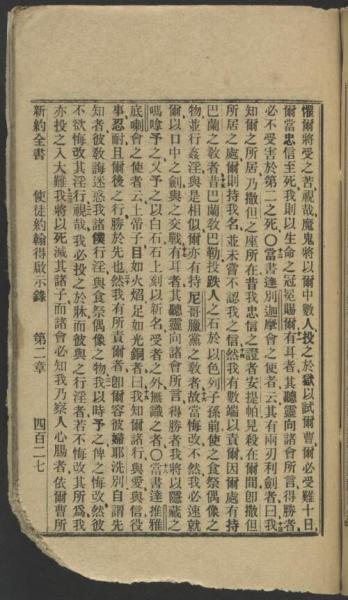 懼爾將受之苦視哉魔鬼將以爾中數人投之於獄以試爾曹爾必受難十日
爾當忠信至死我則以生命之冠冕賜爾有耳者其聽靈向諸會所言得勝者
必不受害於第二之死○當書達別迦摩會之使者云其有兩刃利劍者曰我
知爾之所居乃撒但之座所在昔我忠信之證者安提帕見殺在爾間卽撒但
所居之處爾則持我名並未嘗不認我之信然我有數端以責爾因爾處有持
巴蘭之敎者昔巴蘭敎巴勒投跌人之石於以色列子孫前使之食祭偶像之
物並行姦淫與是相似爾亦有持尼哥臘黨之敎者故當悔改不然我必速就
爾以口中之劍與之交戰有耳者其聽靈向諸會所言得勝者我將以隱藏之
嗎嗱予之又予之以白石石上刻以新名受者之外無識之者○當書達推雅
底喇會之使者云上帝子目如火焰足如光銅者曰我知爾諸行與愛與信役
事忍耐且爾後之行勝於先也然我有所責爾者卽爾容彼婦耶洗別自謂先
知者彼敎誨迷惑我諸僕行淫與食祭偶像之物我以時予之俾之悔改然彼
不欲悔改其淫行視哉我必投之於牀而彼與之行淫者若不悔改其所爲我
亦投之入大難我將以死滅其諸子而諸會必知我乃察人心腸者依爾曹所
新約全書 使徒約翰得啟示錄 第二章 四百二七